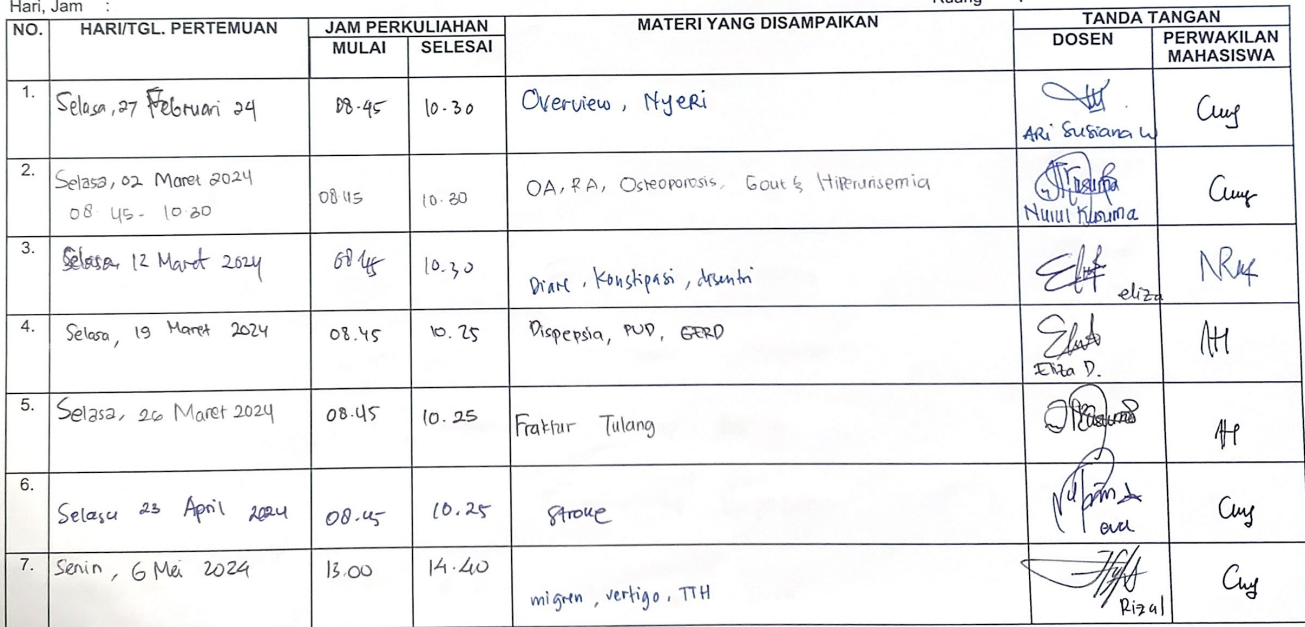 Hari, Jam :
NO. HARI/TGL. PERTEMUAN JAM PERKULIAHAN MATERI YANG DISAMPAIKAN TANDA TANGAN
MULAI SELESAI DOSEN PERWAKILAN MAHASISWA
1. Selasa, 27 Februari 24 08.45 10.30 Overview, Nyeri ARi Susiana W
2. Selasa, 02 Maret 2024 08 45 10.30 OA, RA, Osteoporosis, Gout & Hiperurisemia Nurul Kusuma
08.45 - 10.30
3. Selasa, 12 Maret 2024 08 45 10.30 Diare, Konstipasi, disentri eliza
4. Selasa, 19 Maret 2024 08.45 10.25 Dispepsia, PUD, GERD Eliza D.
5. Selasa, 26 Maret 2024 08.45 10.25 Fraktur Tulang
6. Selasa 23 April 2024 08.45 10.25 Stroke
7. Senin, 6 Mei 2024 13.00 14.40 migren, vertigo, TTH Rizal